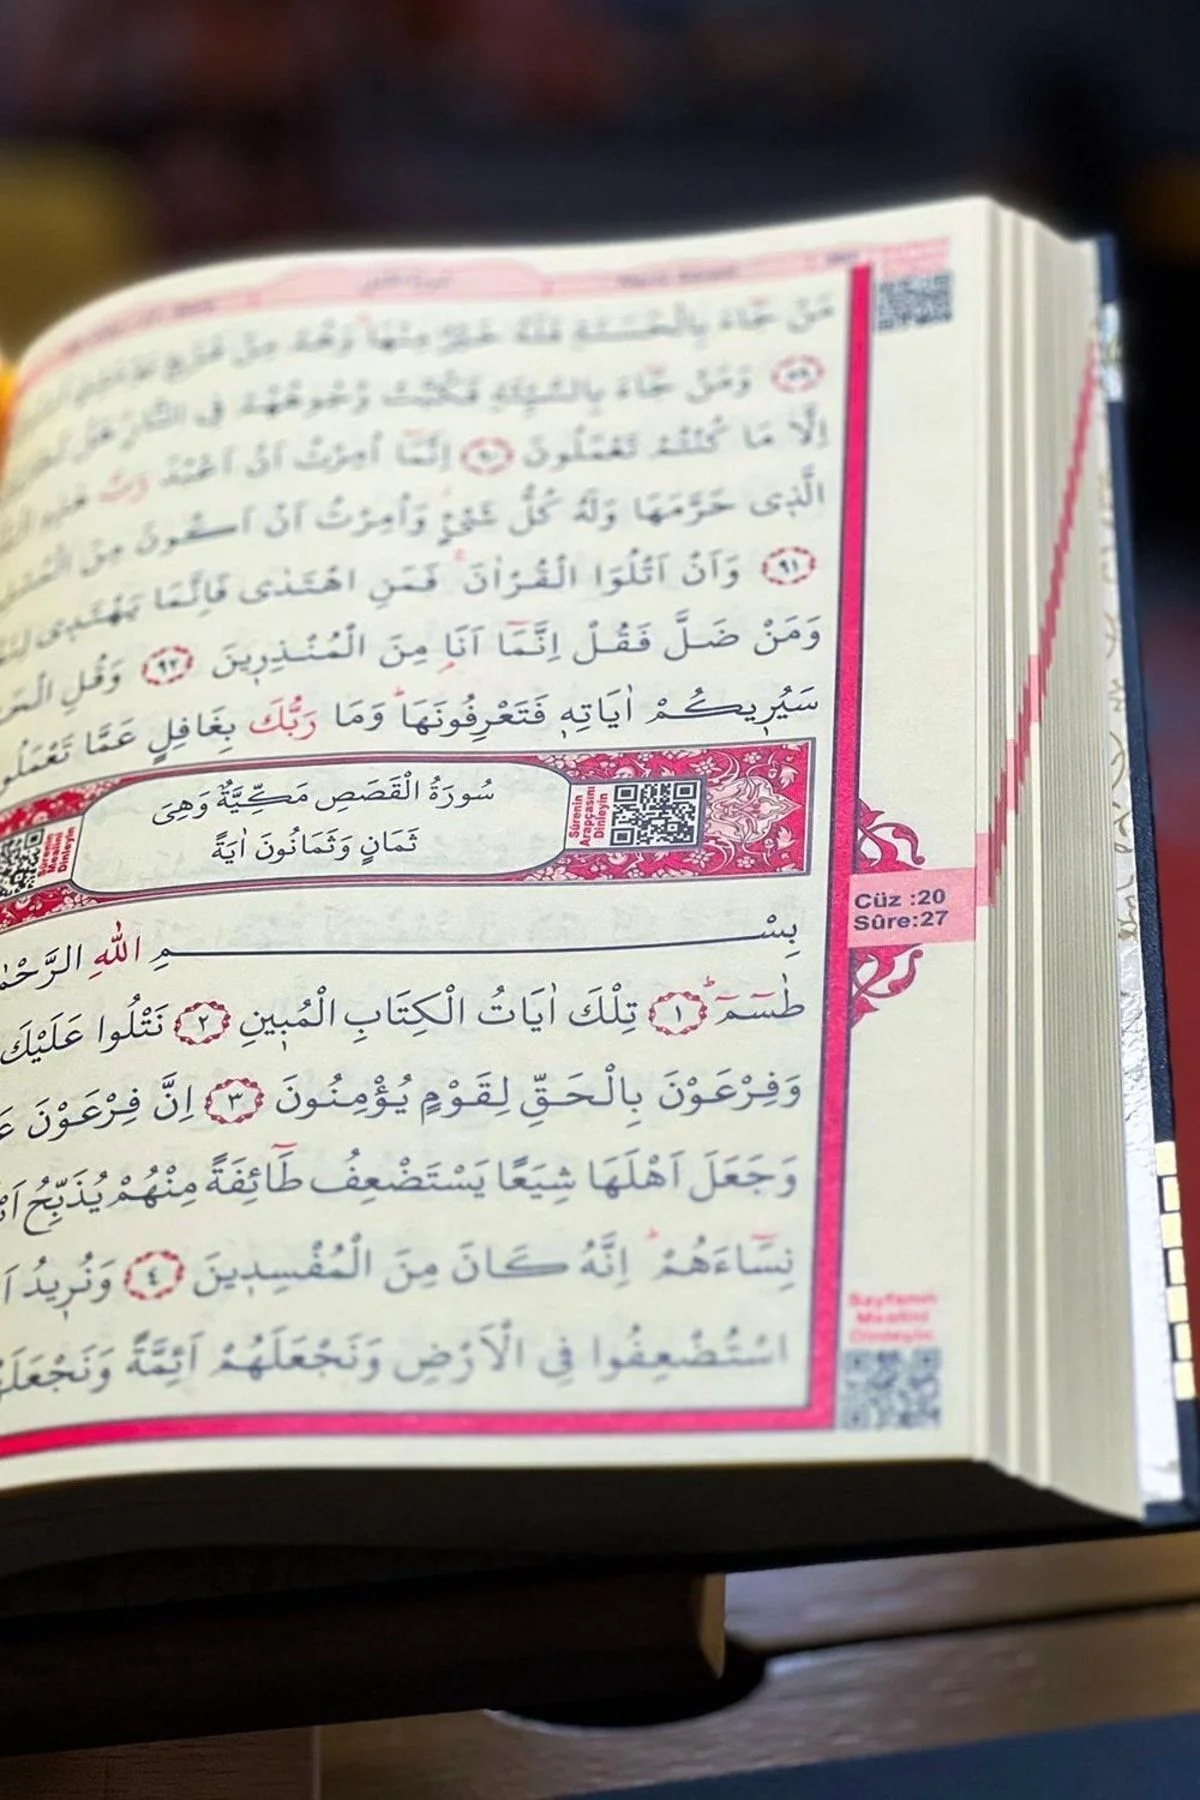 مَنْ جَٓاءَ بِالْحَسَنَةِ فَلَهُ خَيْرٌ مِنْهَا وَهُمْ مِنْ فَزَعٍ يَوْمَئِذٍ
﴿٨٩﴾ وَمَنْ جَٓاءَ بِالسَّيِّئَةِ فَكُبَّتْ وُجُوهُهُمْ فِي النَّارِ هَلْ
اِلَّا مَا كُنْتُمْ تَعْمَلُونَ ﴿٩٠﴾ اِنَّمَٓا اُمِرْتُ اَنْ اَعْبُدَ رَبَّ هٰذِهِ
الَّذ۪ي حَرَّمَهَا وَلَهُ كُلُّ شَيْءٍ وَاُمِرْتُ اَنْ اَكُونَ مِنَ
﴿٩١﴾ وَاَنْ اَتْلُوَا الْقُرْاٰنَ فَمَنِ اهْتَدٰى فَاِنَّمَا يَهْتَد۪ي
وَمَنْ ضَلَّ فَقُلْ اِنَّمَٓا اَنَا مِنَ الْمُنْذِر۪ينَ ﴿٩٢﴾ وَقُلِ
سَيُر۪يكُمْ اٰيَاتِه۪ فَتَعْرِفُونَهَا وَمَا رَبُّكَ بِغَافِلٍ عَمَّا تَعْمَلُونَ
سُورَةُ الْقَصَصِ مَكِّيَّةٌ وَهِيَ
ثَمَانٍ وَثَمَانُونَ اٰيَةً
Sûrenin
Arapçasını
Dinleyin
Sûrenin
Mealini
Dinleyin
Cüz :20
Sûre:27
بِسْمِ اللّٰهِ
طٰسٓمٓ ﴿١﴾ تِلْكَ اٰيَاتُ الْكِتَابِ الْمُب۪ينِ ﴿٢﴾ نَتْلُوا عَلَيْكَ
وَفِرْعَوْنَ بِالْحَقِّ لِقَوْمٍ يُؤْمِنُونَ ﴿٣﴾ اِنَّ فِرْعَوْنَ
وَجَعَلَ اَهْلَهَا شِيَعًا يَسْتَضْعِفُ طَٓائِفَةً مِنْهُمْ يُذَبِّحُ
نِسَٓاءَهُمْ اِنَّهُ كَانَ مِنَ الْمُفْسِد۪ينَ ﴿٤﴾ وَنُر۪يدُ
اسْتُضْعِفُوا فِي الْاَرْضِ وَنَجْعَلَهُمْ اَئِمَّةً
Sayfanın
Mealini
Dinleyin